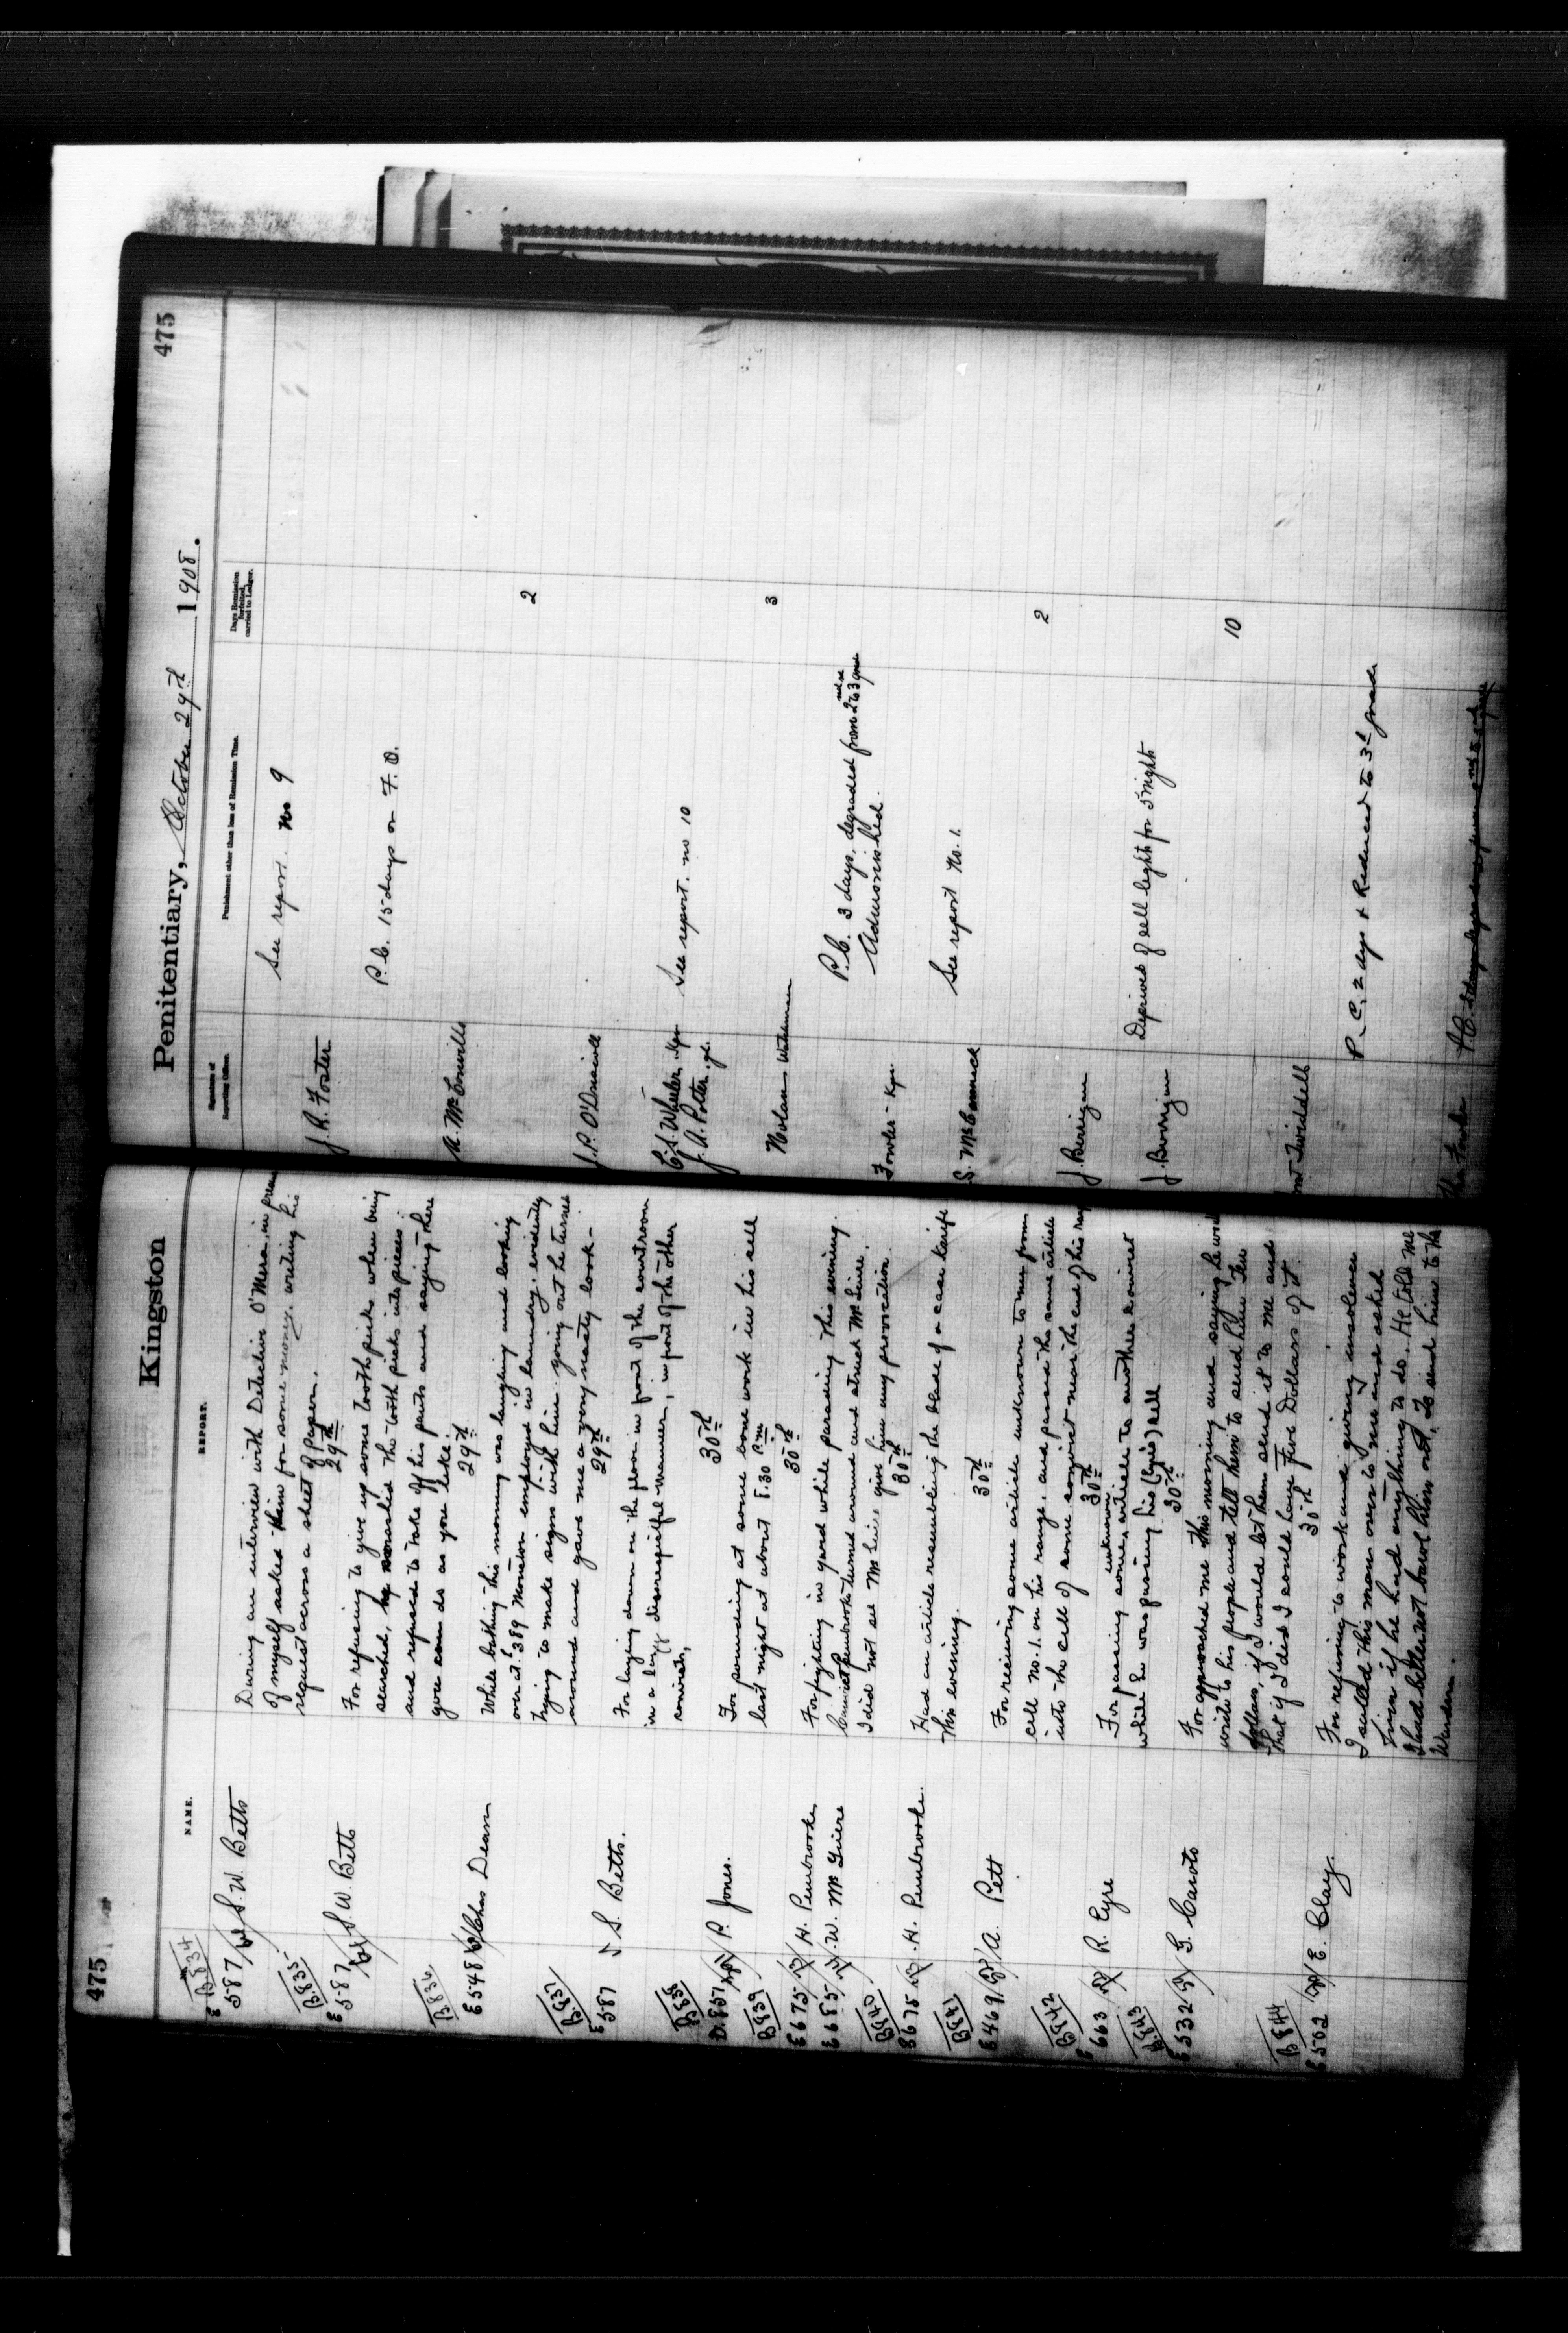 475
Kingston
NAME.
REPORT.
B.834
E 587 S. W. Betts
During an interview with Detective O'Meara, in
of myself asked him for some money, writing his
request across a sheet of paper.
29th
B.835
E 587 S. W. Betts
For refusing to give up some tooth picks when being
searched, he the tooth picks into pieces
and refused to take off his pants and saying there
you can do as you like.
29th
B.836
E 548 Chas Dean
While bathing this morning was laughing and looking
over at E 389 Moreton employed in laundry, evidently
trying to make signs with him. going out he turned
around and gave me a very nasty look -
29th
B.837
E 587 S. Betts.
For laying down on the floor in front of the courtroom
in a lazy disrespectful manner, in front of the other
convicts,
30th
B.838
D.857 P. Jones.
For pounding at some bone work in his cell
last night at about 8.30 P.m.
30th
B839
E 675 H. Pembrooke
E 685 W. McGuire
For fighting in yard while parading this evening.
Convict Pembrooke turned around and struck McGuire.
I did not see McGuire give him any provocation.
30th
B840
E 675 H. Pembrooke.
Had an article resembling the blade of a case knife
this evening.
30th
B841
E 469 A. Pett
For receiving some article unknown to me from
cell No. 1. on his range, and passed the same article
into the cell of some convict near the end of his
30th
B842
E 663 R. Eyre
For passing some unknown article to another convict
while he was passing his (Eyre's) cell
30th
B.843
E 532 G. Caroto
For approached me this morning and saying he
write to his people and tell them to send him Ten
dollars, if I would let them send it to me and
that if I did I could have Five Dollars of it.
30th
B844
E 502 E. Clay.
For refusing to work and giving insolence
I called this man over to me and asked
him if he had anything to do. He told me
I had better not bawl him out, to send him to the
Warden.
475
Penitentiary, October 29th 1908.
Signature of Reporting Officer.
Punishment other than loss of Remission Time.
Days Remission forfeited, carried to Ledger.
J. R. Foster
See report. No 9
A. McConville
P. C. 15 days on F. D.
2
J. P. O'Driscoll
C. S. Wheeler. Kpr
J. A. Potter. gd.
See report. no 10
Nolan Watchman
3
Fowler - Kpr.
P. C. 3 days, degraded from 2nd to 3rd grade
Admonished.
S. McCormick
See report No. 1.
J. Berrigan
2
J. Berrigan
Deprived of cell light for 5 nights
Twiddell
10
P. C. 2 days & Reduced to 3d grade
Fowler